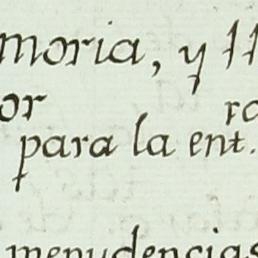 moria, y
or ro
para la ent.
menudencias